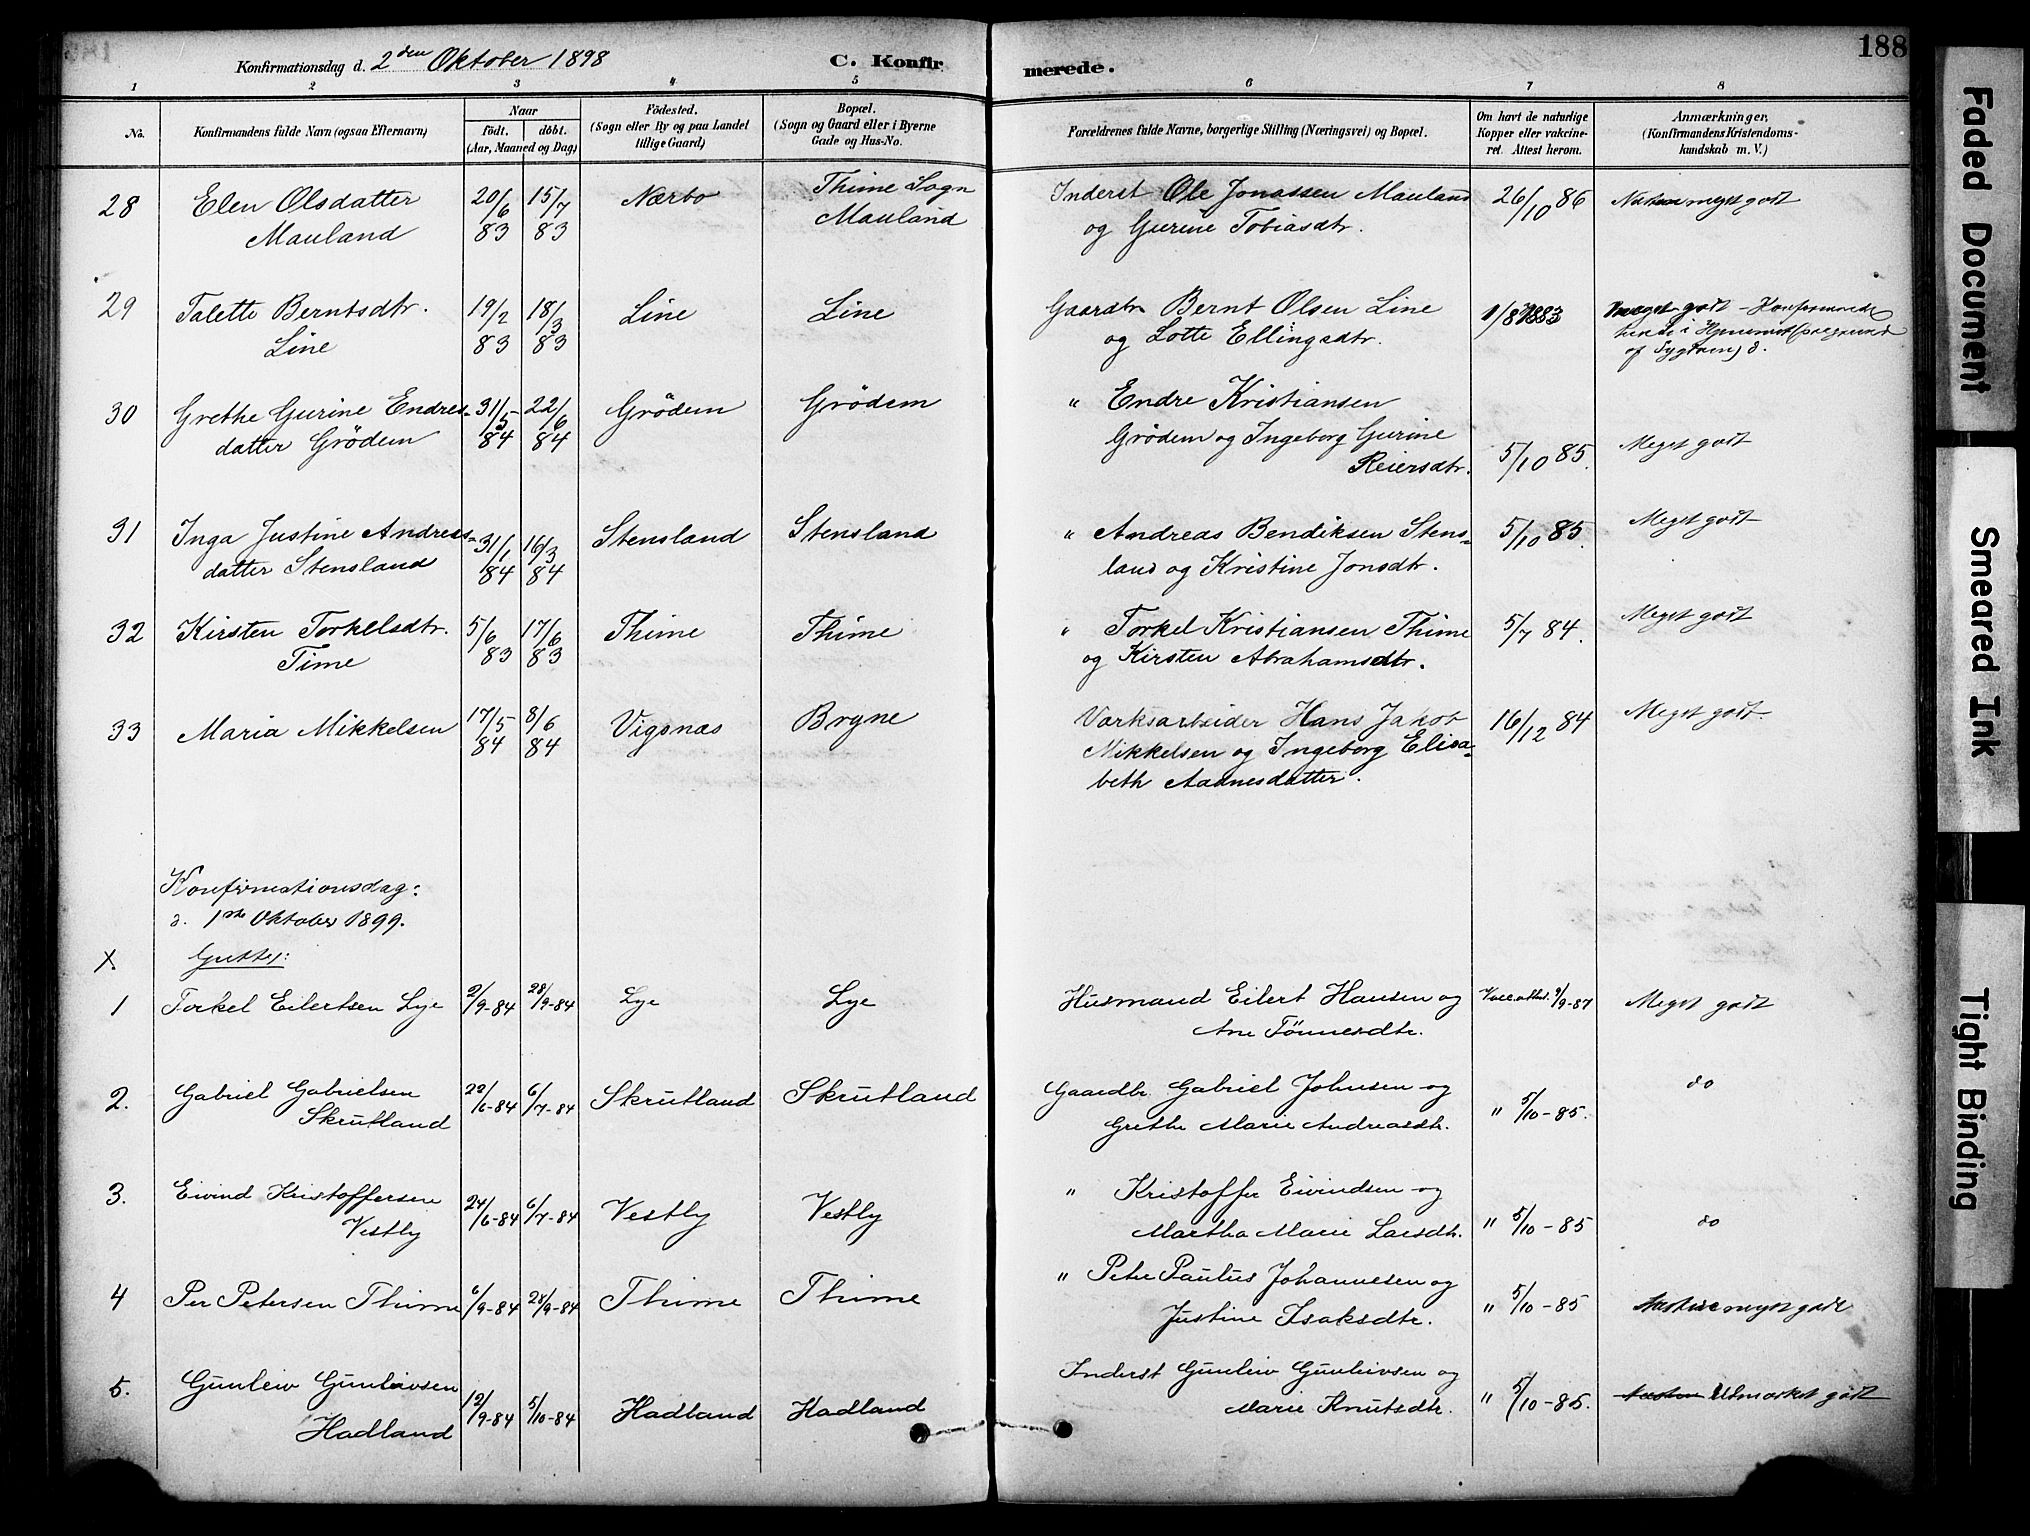 Konfirmationsdag d. 2den Oktober 1898
C. Konfir
merede.
188
1 2 3 4 5 6 7 8
No.
Konfirmandens fulde Navn (ogsaa Efternavn)
Naar
födt. döbt.
(Aar, Maaned og Dag)
Födested.
(Sogn eller By og paa Landet
tillige Gaard)
Bopæl.
(Sogn og Gaard eller i Byerne
Gade og Hus-No.
Forældrenes fulde Navne, borgerlige Stilling (Næringsvei) og Bopæl.
Om havt de naturlige
Kopper eller vakcine-
ret. Attest herom.
Anmærkninger,
(Konfirmandens Kristendoms-
kundskab m. V.)
28 Elen Olsdatter
Mauland
20/6 83 15/7 83
Nærbo
Thime Sogn
Mauland
Inderst Ole Jonassen Mauland
og Gurine Tobiasdtr.
26/10 86
meget godt
29 Talette Berntsdtr.
Line
19/2 83 18/3 83
Line
Line
Gaardbr. Bernt Olsen Line
og Lotte Ellingsdtr.
meget godt - Konfirmeredes
30 Grethe Gurine Endres-
datter Grödem
31/5 84 22/6 84
Grödem
Grödem
" Endre Kristiansen
Grödem og Ingeborg Gurine
Reiersdtr.
5/10 85.
Meget godt
31 Inga Justine Andreas-
datter Stensland
31/1 84 16/3 84
Stensland
Stensland
" Andreas Bendiksen Stens-
land og Kristine Jonsdtr.
5/10 85.
Meget godt
32 Kirsten Torkelsdtr.
Time
5/6 83 17/6 83
Thime
Thime
" Torkel Kristiansen Thime
og Kirsten Abrahamsdtr.
5/7 84.
Meget godt
33 Maria Mikkelsen
17/5 84 8/6 84
Vigsnæs
Bryne
Værksarbeider Hans Jakob
Mikkelsen og Ingeborg Elisa-
beth Aadnesdatter.
16/12 84
Meget godt.
Konfirmationsdag:
d. 1ste Oktober 1899.
X Gutter:
1 Torkel Eilertsen Lye
2/9-84 28/9-84
Lye
Lye
Husmand Eilert Hansen og
Ane Tönnesdtr.
Meget godt
2. Gabriel Gabrielsen
Skrutland
22/6-84 6/7-84
Skrutland
Skrutland
Gaardbr. Gabriel Johnsen og
Grethe Marie Andreasdtr.
" 5/10-85.
do
3. Eivind Kristoffersen
Vestly
24/6-84 6/7-84
Vestly
Vestly
" Kristoffer Eivindsen og
Martha Marie Larsdtr.
" 5/10-85
do
4 Per Petersen Thime
6/9-84 28/9-84
Thime
Thime
" Peter Paulus Johannesen og
Justine Isaksdtr.
" 5/10-85
Næsten meget godt
5. Gunleiv Gunleivsen
Hadland
12/9-84 5/10-84
Hadland
Hadland
Inderst Gunleiv Gunleivsen og
Marie Knutsdtr.
" 5/10-85.
Næsten Udmærket godt
Faded Document
Smeared Ink
Tight Binding